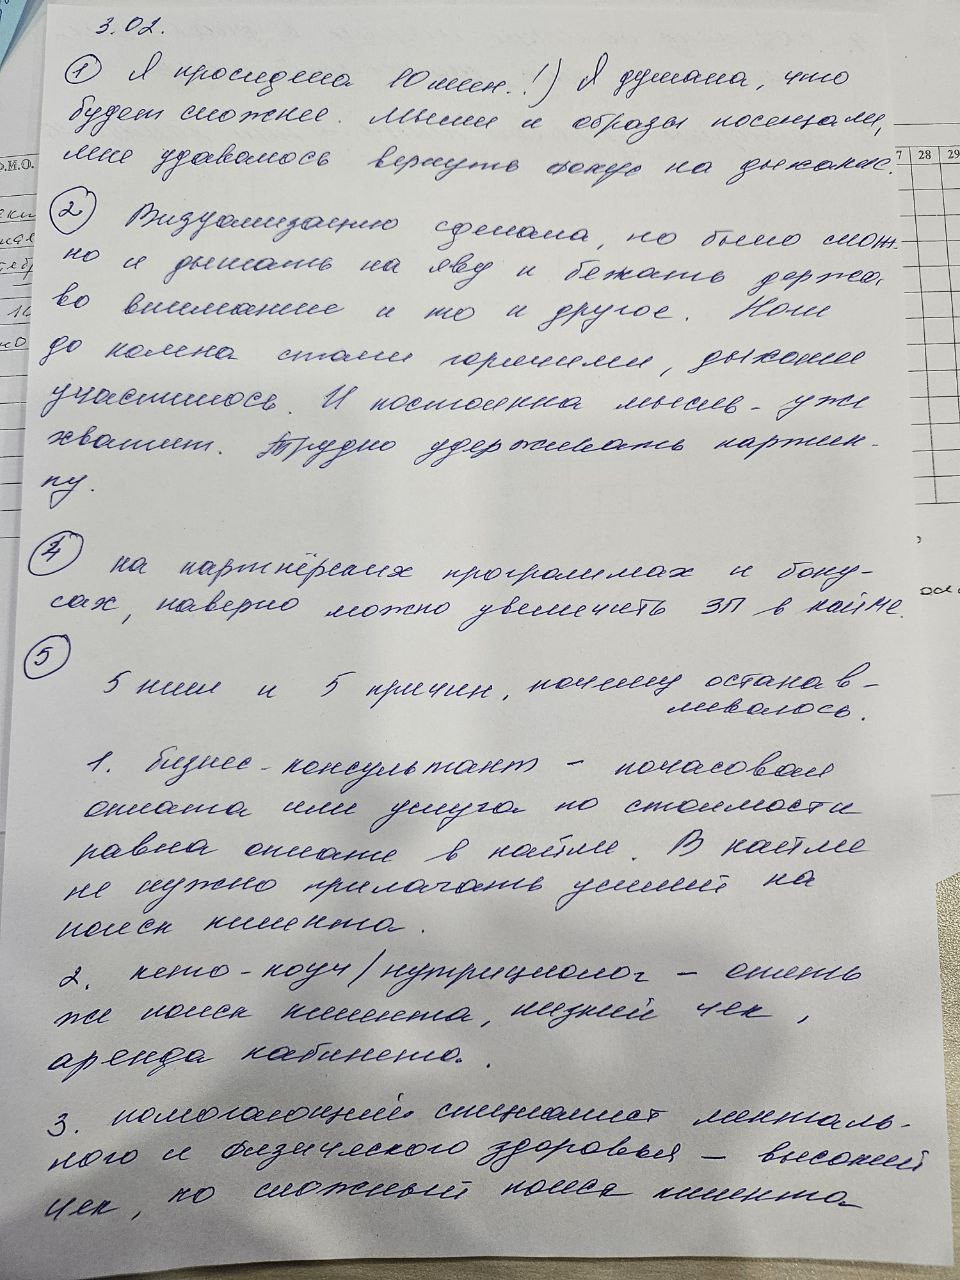 3.02.
① Я просидела 10 мин.!) Я думала, что
будет сложнее. Мысли и образы посещали,
мне удавалось вернуть фокус на дыхание.
② Визуализацию сделала, но было слож-
но и дышать на яву и бежать держа,
во внимание и то и другое. Ноги
до колена стали горячими, дыхание
участилось. И постоянна мысль - уже
хватит. Трудно удерживать картин-
ку.
④ на партнёрских программах и бону-
сах, наверно можно увеличить ЗП в найме.
⑤
5 ниш и 5 причин, почему останав-
ливалось.
1. бизнес-консультант - почасовая
оплата или услуга по стоимости
равна оплате в найме. В найме
не нужно прилагать усилий на
поиск клиента.
2. кето-коуч/нутрициолог - опять
же поиск клиента, низкий чек,
аренда кабинета.
3. помогающий специалист менталь-
ного и физического здоровья - высокий
чек, но сложный поиск клиента
Ф.И.О.
28
29